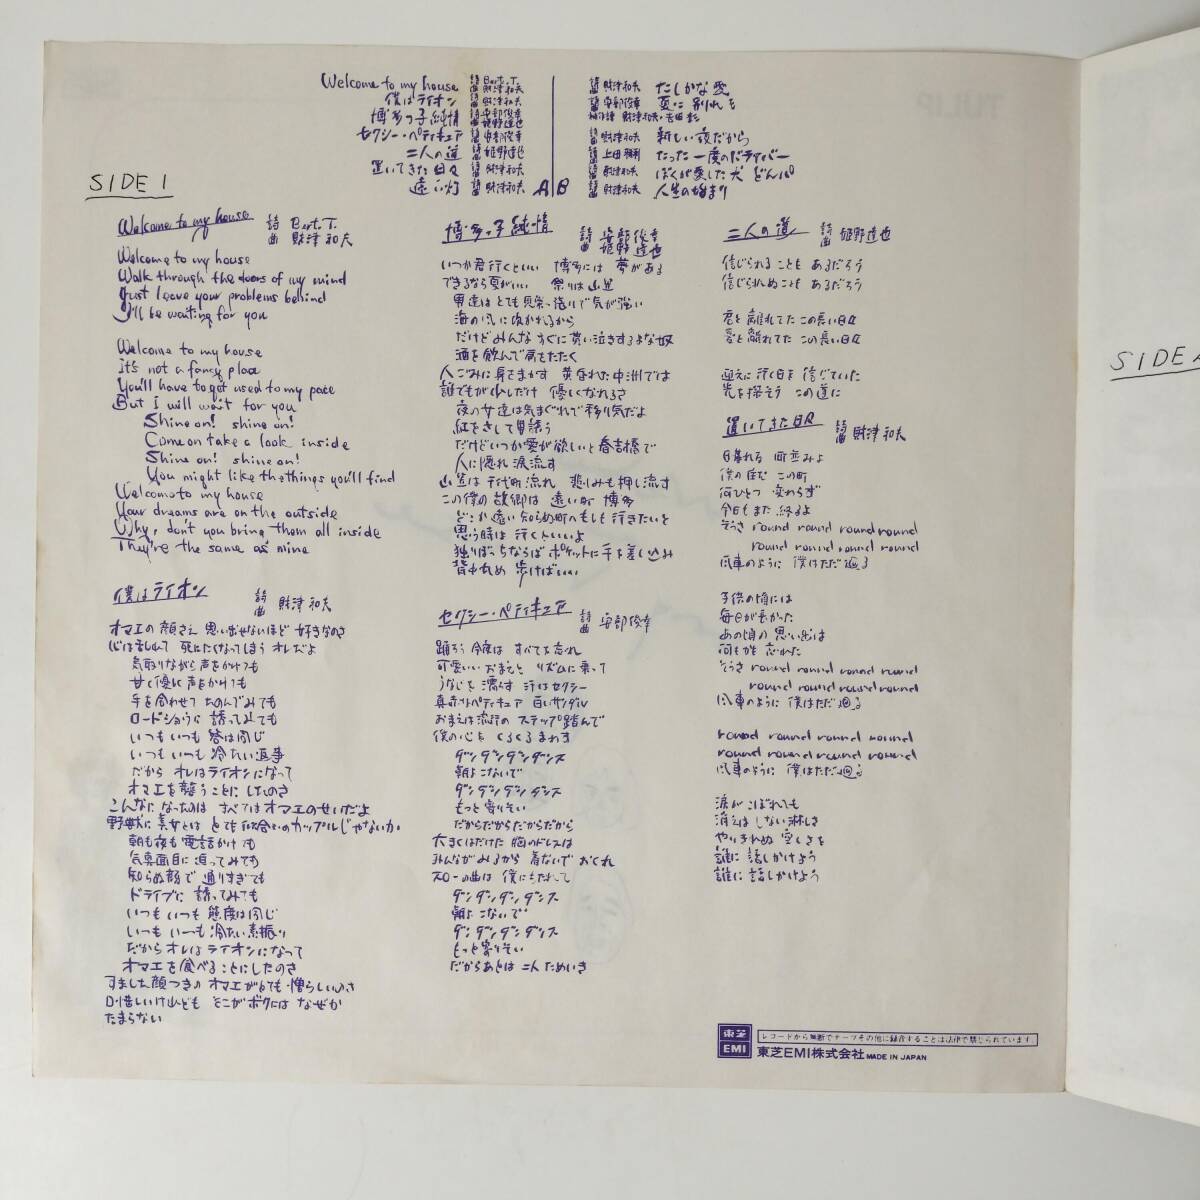 Welcome to my house 詩 Bert. T. 曲 財津和夫
僕はライオン 詩曲 財津和夫
博多っ子純情 詩 安部俊幸 曲 姫野達也
セクシー・ペティキュア 詩曲 安部俊幸
二人の道 詩曲 姫野達也
置いてきた日々 詩曲 財津和夫
遠い灯 詩曲 財津和夫
A B
詩曲 財津和夫 たしかな愛
安部俊幸 夏に別れを
補作詩 財津和夫・吉田彰
詩曲 財津和夫 新しい夜だから
詩曲 上田雅利 たった一度のドライバー
詩曲 財津和夫 ぼくが愛した犬 どんぺい
詩曲 財津和夫 人生の始まり
TULIP
SIDE 1
Welcome to my house 詩 Bert. T.
曲 財津和夫
Welcome to my house
Walk through the doors of my mind
Just leave your problems behind
I'll be waiting for you
Welcome to my house
It's not a fancy place
You'll have to get used to my pace
But I will wait for you
Shine on! shine on!
Come on take a look inside
Shine on! shine on!
You might like the things you'll find
Welcome to my house
Your dreams are on the outside
Why, don't you bring them all inside
They're the same as mine
僕はライオン 詩曲 財津和夫
オマエの顔さえ 思い出せないほど 好きなのさ
心は苦しくて 死にたくなってしまう オレだよ
気取りながら声をかけても
甘く優しく声をかけても
手を合わせて たのんでみても
ロードショウに 誘ってみても
いつもいつも 答は同じ
いつもいつも 冷たい返事
だから オレはライオンになって
オマエを襲うことにしたのさ
こんなになったのは すべてはオマエのせいだよ
野獣に美女とは とても似合いのカップルじゃないか
朝も夜も電話かけても
気真面目に迫ってみても
知らぬ顔で 通りすぎても
ドライブに 誘ってみても
いつもいつも 態度は同じ
いつもいつも 冷たい素振り
だからオレはライオンになって
オマエを食べることにしたのさ
すました顔つきの オマエがとても 憎らしいのさ
口惜しいけれども そこがボクには なぜか
たまらない
博多っ子純情 詩 安部俊幸
曲 姫野達也
いつか君行くといい 博多には 夢がある
できるなら夏がいい 祭りは山笠
男達はとても見栄っ張りで気が強い
海の風に吹かれるから
だけどみんな すぐに貰い泣きするよな奴
酒を飲んで肩をたたく
人ごみに身をまかす 黄昏れた中洲では
誰でもが少しだけ 優しくなれるさ
夜の女達は気まぐれで移り気だよ
紅をさして男誘う
だけどいつか愛が欲しいと春吉橋で
人に隠れ涙流す
山笠は千代町流れ 悲しみも押し流す
この僕の故郷は 遠い町 博多
どこか遠い知らぬ町へもしも行きたいと
思う時は 行くといいよ
独りぼっちならば ポケットに手を差し込み
背中丸め 歩けばいい
セクシー・ペティキュア 詩曲 安部俊幸
踊ろう今夜は すべてを忘れ
可愛いいおまえと リズムに乗って
うなじを濡らす 汗はセクシー
真赤なペティキュア 白いサンダル
おまえは流行の ステップ踏んで
僕の心を くるくるまわす
ダンダンダンダンス
朝よこないで
ダンダンダンダンス
もっと寄りそい
だからだからだからだから
大きくはだけた 胸のドレスは
みんながみるから 着ないでおくれ
スローの曲は 僕にもたれて
ダンダンダンダンス
朝よこないで
ダンダンダンダンス
もっと寄りそい
だからあとは 二人ためいき
二人の道 詩曲 姫野達也
信じられることも あるだろう
信じられぬことも あるだろう
君と離れてた この長い日々
愛と離れてた この長い日々
迎えに行く日を 信じていた
光を探そう この道に
置いてきた日々 詩曲 財津和夫
日暮れる 町並みよ
僕の住む この町
何ひとつ 変わらず
今日もまた 終るよ
そうさ round round round round
round round round round
風車のように 僕はただ廻る
子供の頃には
毎日が長かった
あの頃の 思い出は
何もかも 忘れた
そうさ round round round round
round round round round
風車のように 僕はただ廻る
round round round round
round round round round
風車のように 僕はただ廻る
涙がこぼれても
消えはしない淋しさ
やりきれぬ 空しさを
誰に 話しかけよう
誰に 話しかけよう
SIDE
東芝
EMI
レコードから無断でテープその他に録音することは法律で禁じられています。
東芝EMI株式会社 MADE IN JAPAN